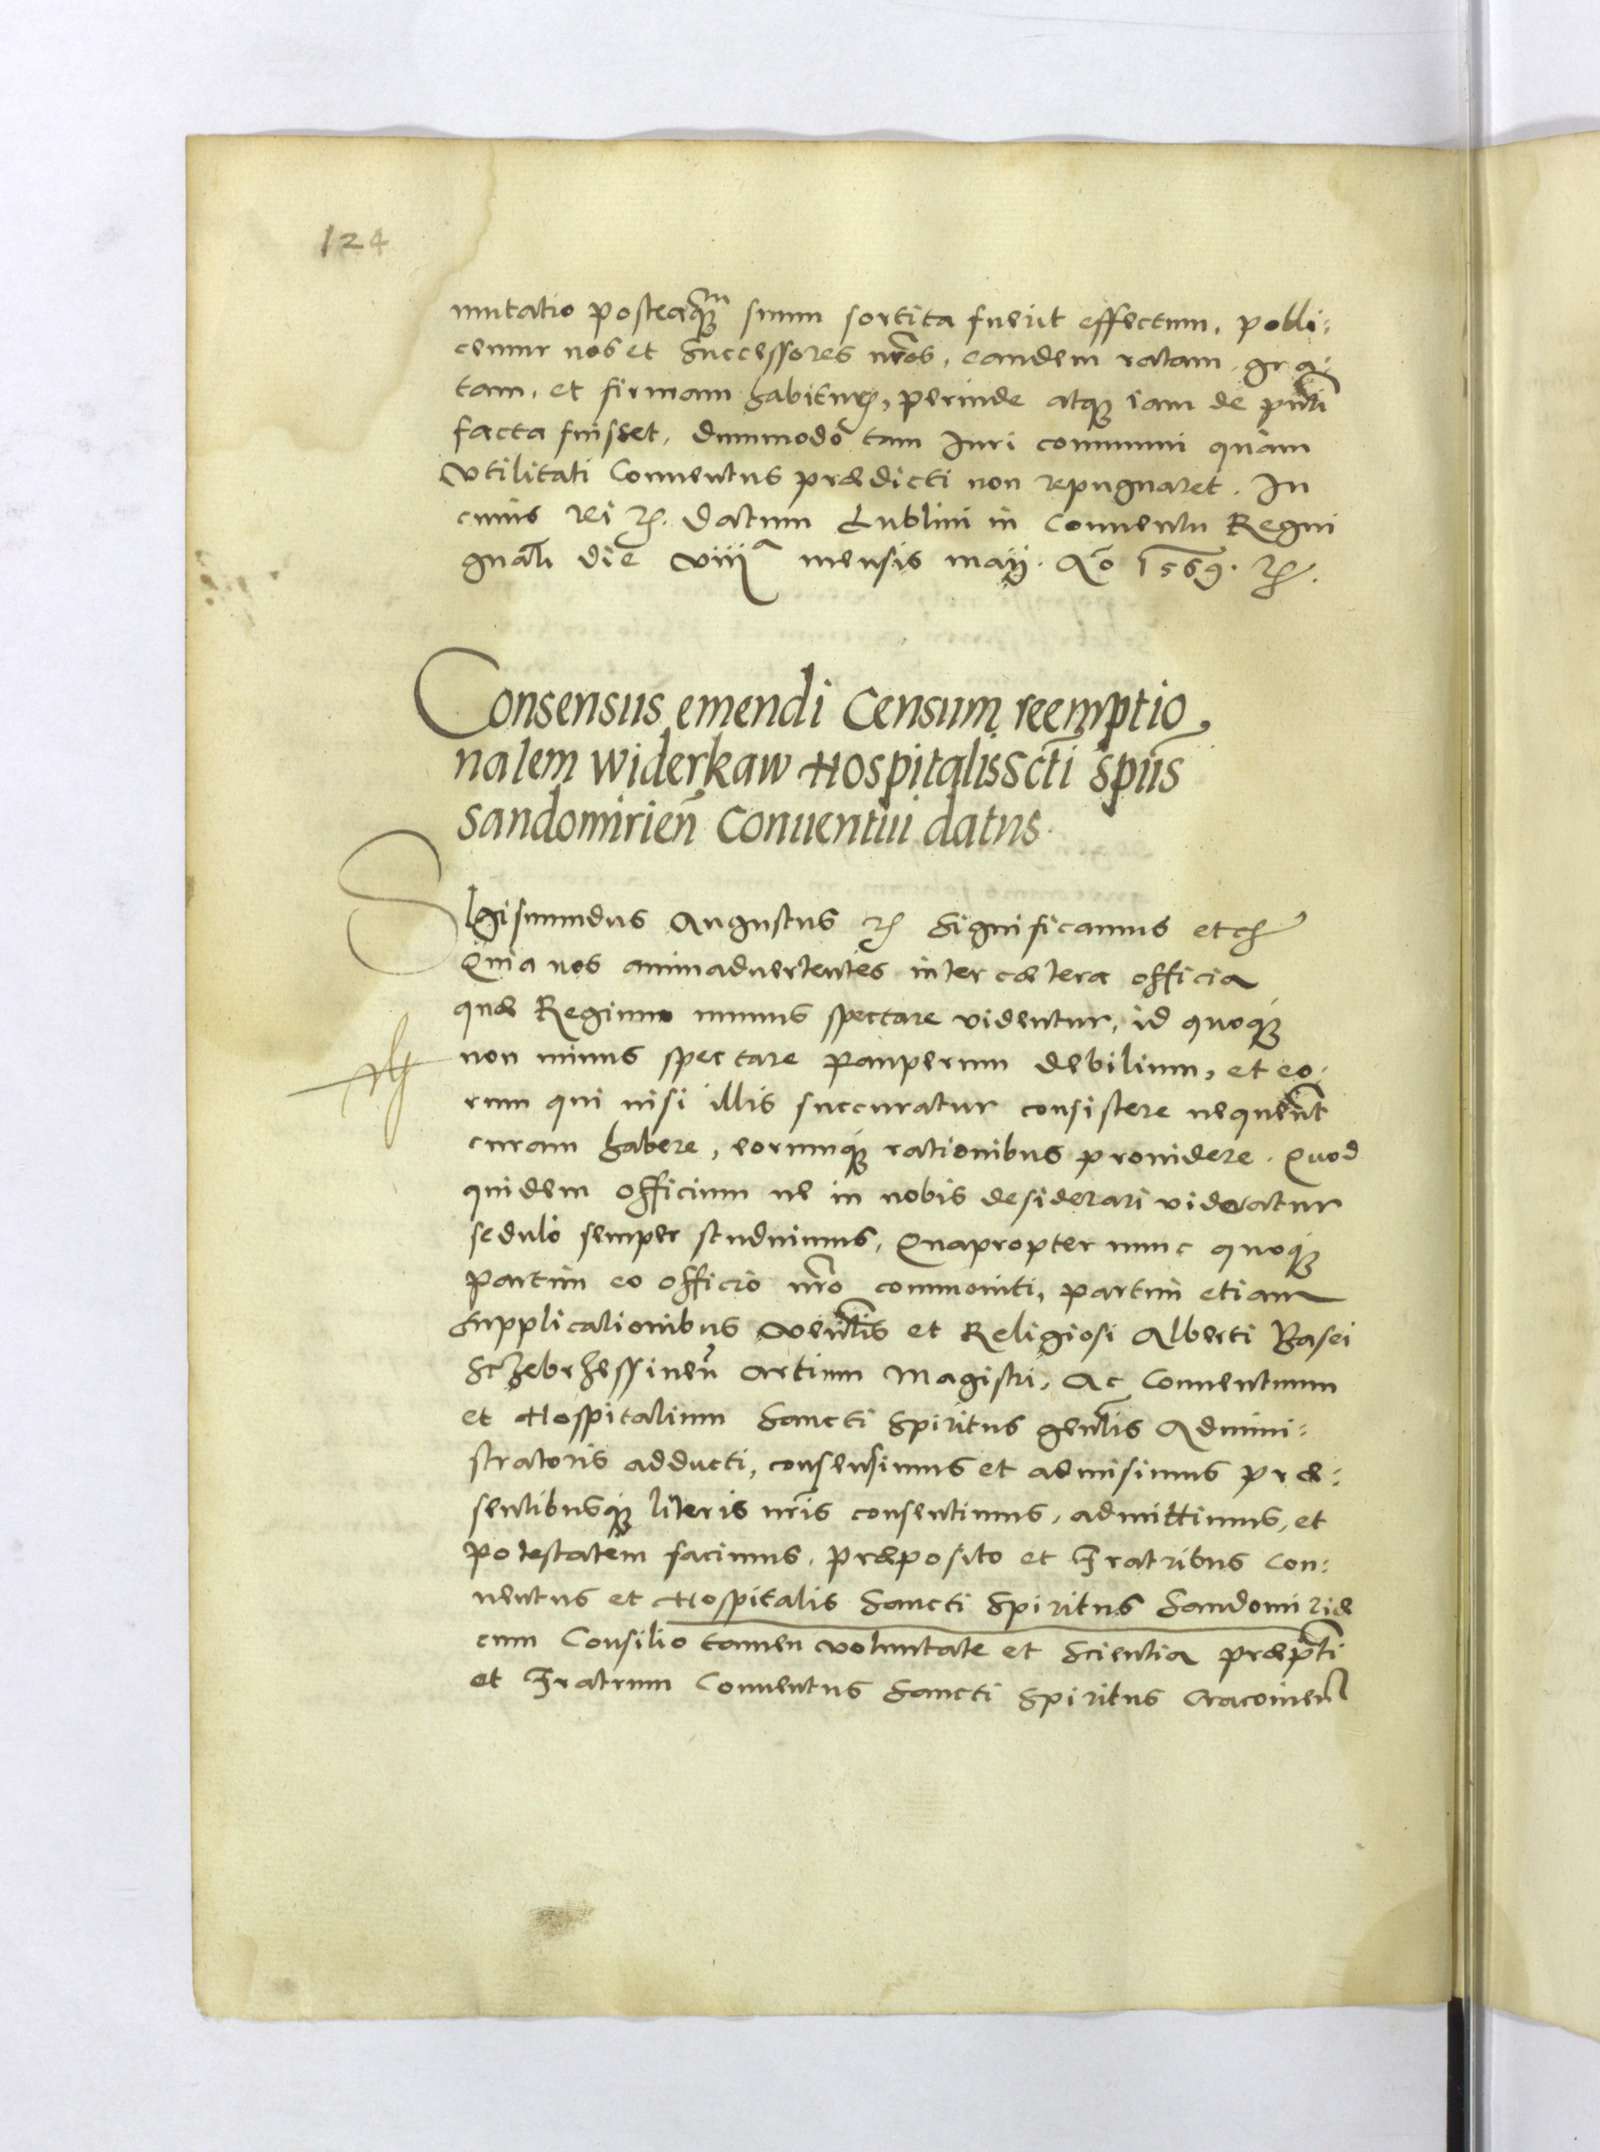 124
mutatio posteaq3m suum sortita fuerit effectum, polli:
cemur nos et Successores nr̃os, eandem ratam, gra:
tam, et firmam habituros, perinde atq3 iam de pñti
facta fuisset, dummodo tam Iuri communi quam
vtilitati Conuentus prædicti non repugnaret. In
cuius Rei etc. Datum Lublini in Conuentu Regni
gnãli die viiij a mensis maij. Aõ 1569. etc.
Consensus emendi Censum reemptio,
nalem widerkaw Hospitalis Scti Spũs
Sandomirieñ Conuentui datus.
SIgismundus Augustus etc Significamus etc
Quia nos animaduertentes inter cætera officia
quæ Regium munus spectare videntur, id quoq3
non minus spectare pauperum debilium, et eo:
rum qui nisi illis succuratur consistere nequeũt
curam habere, eorumq3 rationibus prouidere. Quod
quidem officium ne in nobis desiderari videatur
sedulo semper studuimus, Quapropter nunc quoq3
partim eo officio nr̃o commoniti, partim etiam
Supplicationibus Veñlis et Religiosi Alberti Basei
Sczebrzessineñ Artium Magistri, Ac Conuentuum
et Hospitalium Sancti Spiritus geñlis Admini:
stratoris adducti, consensimus et admisimus præ:
sentibusq3 literis nr̃is consentimus, admittimus, et
potestatem facimus, Præposito et Fratribus Con:
uentus et Hospitalis Sancti Spiritus Sandomiriæ
cum Consilio tamen voluntate et Scientia præpti
et Fratrum Conuentus Sancti Spiritus Cracouieñ